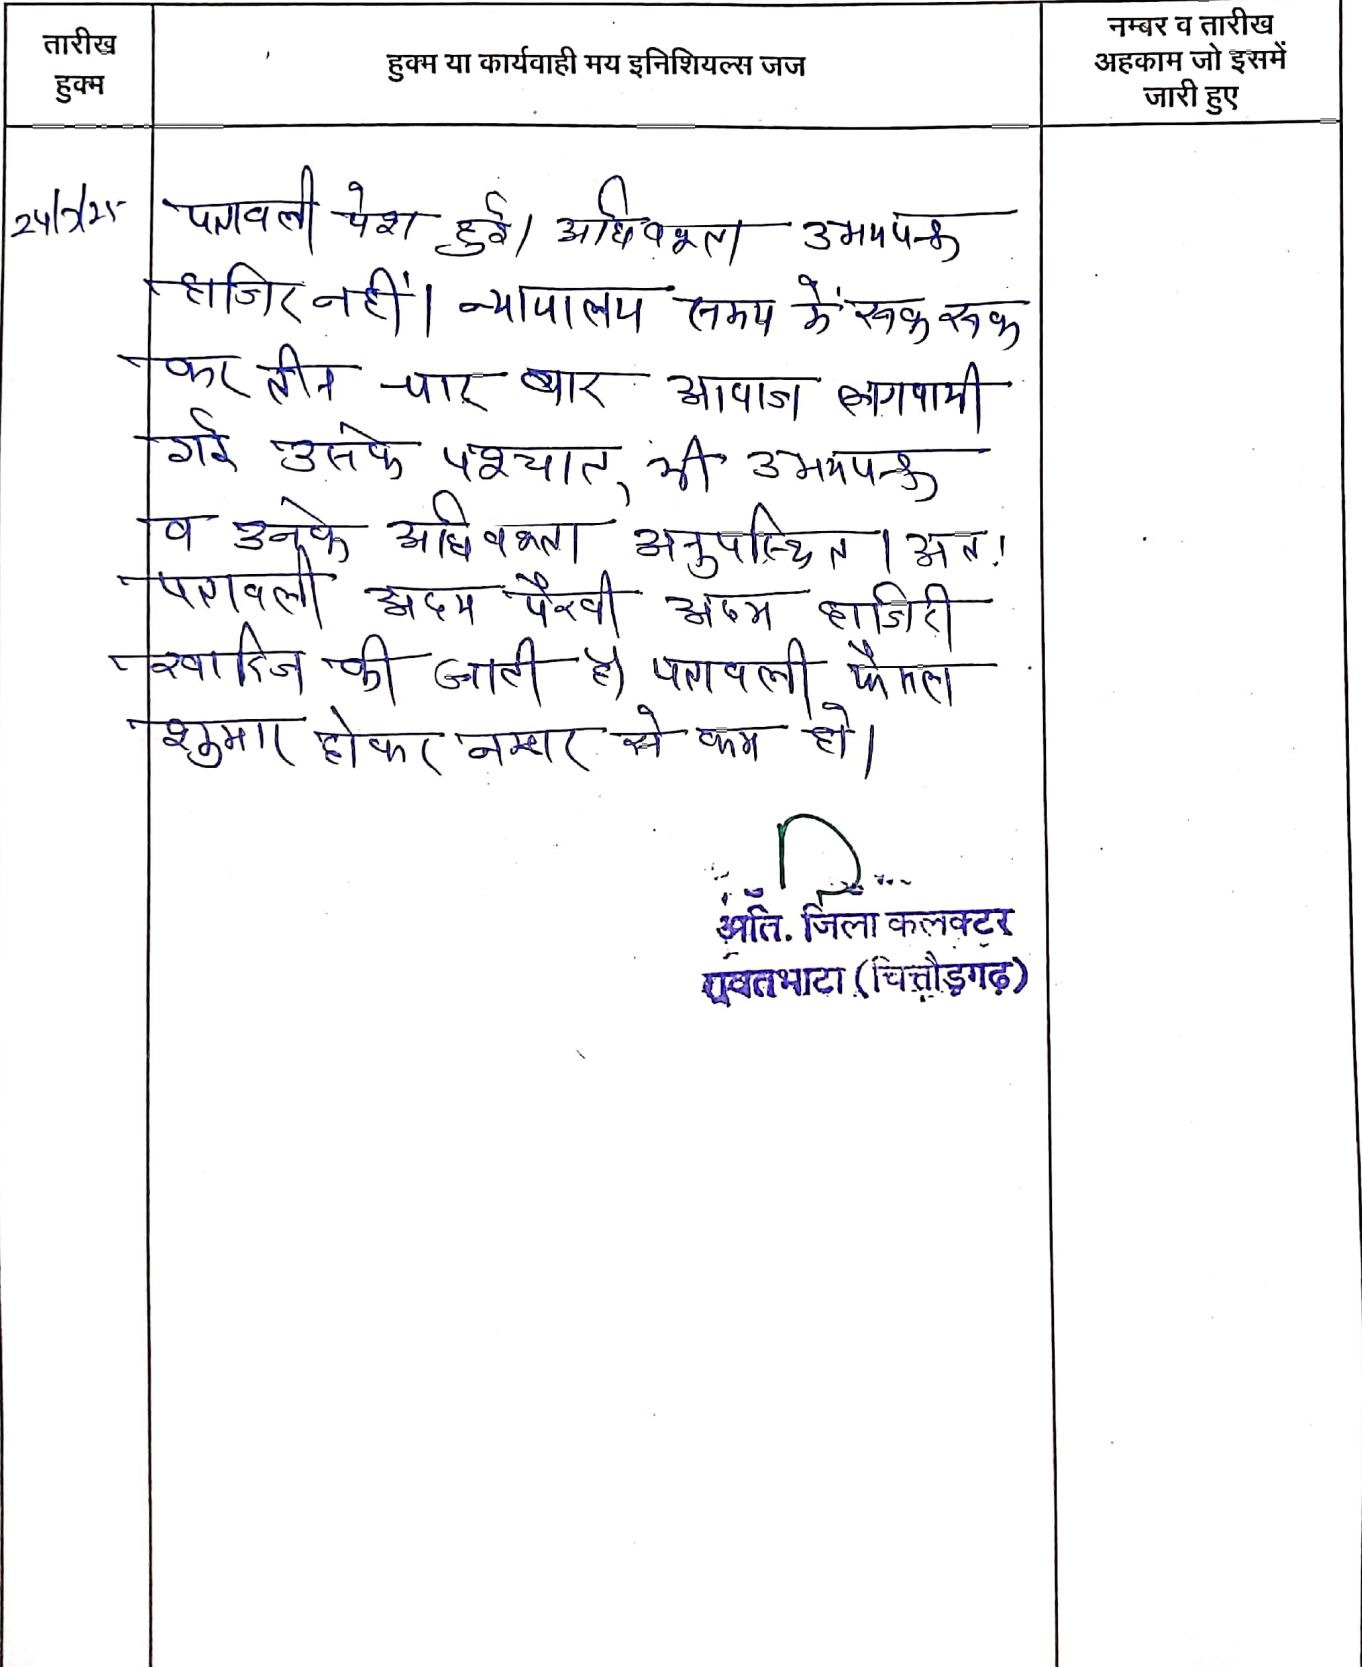 तारीख
हुक्म
हुक्म या कार्यवाही मय इनिशियल्स जज
नम्बर व तारीख
अहकाम जो इसमें
जारी हुए
पत्रावली पेश हुई। अधिवक्ता उभयपक्ष
हाजिर नहीं। न्यायालय समय में रूक रूक
कर तीन चार बार आवाज लगवायी
गई उसके पश्चात् भी उभयपक्ष
व उनके अधिवक्ता अनुपस्थित। अतः
पत्रावली अदम पैरवी अदम हाजिरी
खारिज की जाती है। पत्रावली फैसल
शुमार होकर नम्बर से कम हो।
अति. जिला कलक्टर
रावतभाटा (चित्तौड़गढ़)